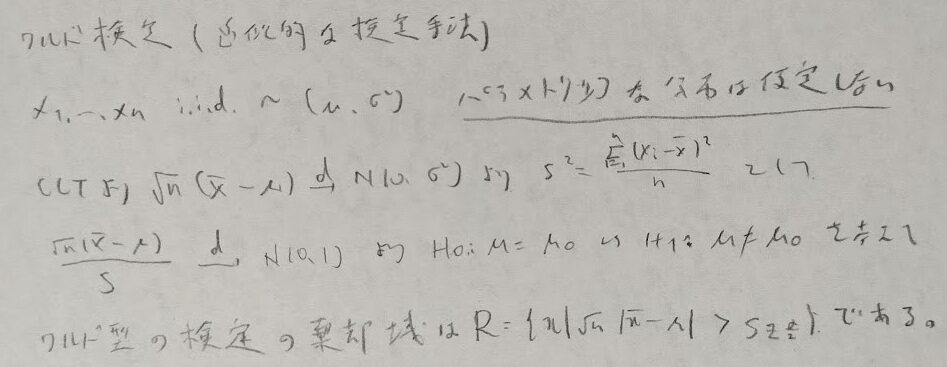 ワルド検定(近似的な検定手法)
x₁, …, xₙ i.i.d. ~ (μ, σ²) パラメトリックな分布は仮定しない
CLTより √n(x̄-μ) →d N(0, σ²) より s² = Σⁿᵢ₌₁(xᵢ-x̄)²/n として
√n(x̄-μ)/S →d N(0,1) より H₀: μ=μ₀ vs H₁: μ≠μ₀ を考えて
ワルド型の検定の棄却域は R={x|√n|x̄-μ| > S z_{α/2}} である。